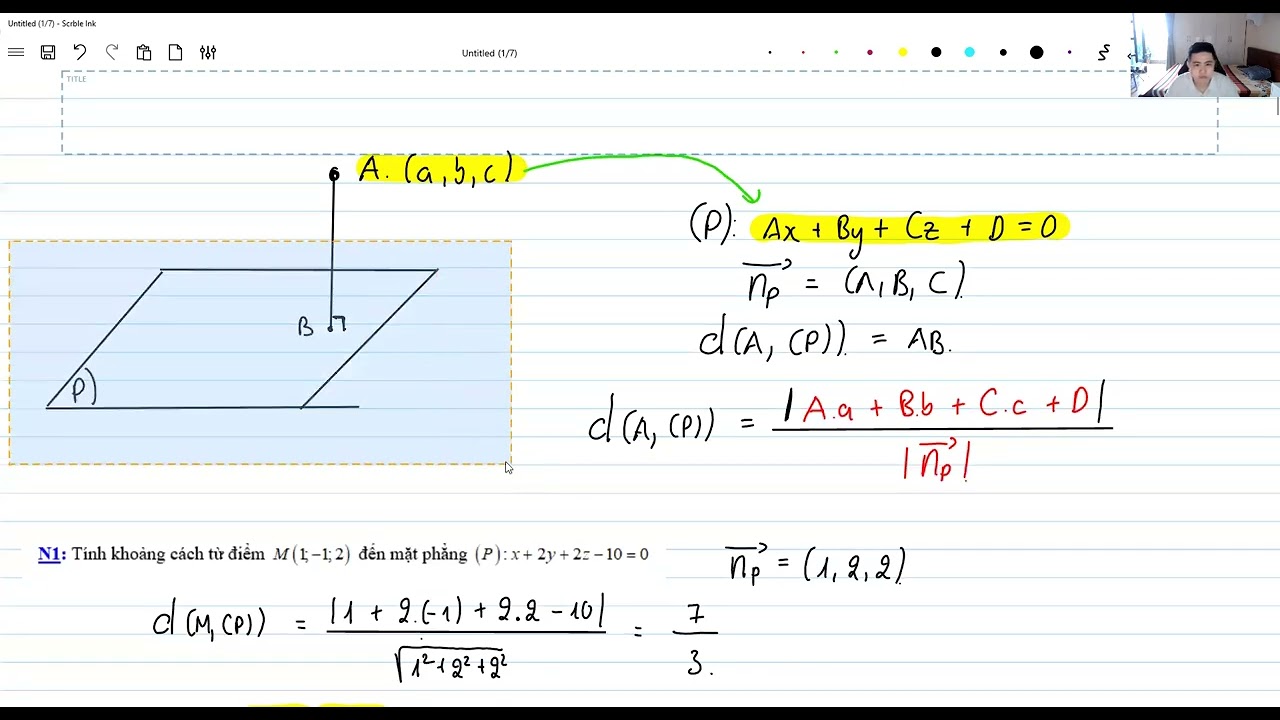 Untitled (1/7) - Scrble Ink
Untitled (1/7)
TITLE
A. (a, b, c)
(P): Ax + By + Cz + D = 0
n⃗p = (A, B, C)
B
d(A, (P)) = AB.
P)
d(A, (P)) = |A.a + B.b + C.c + D| / |n⃗p|
N1: Tính khoảng cách từ điểm M(1;−1;2) đến mặt phẳng (P): x + 2y + 2z − 10 = 0
n⃗p = (1, 2, 2)
d(M, (P)) = |1 + 2.(-1) + 2.2 − 10| / √1² + 2² + 2² = 7 / 3.